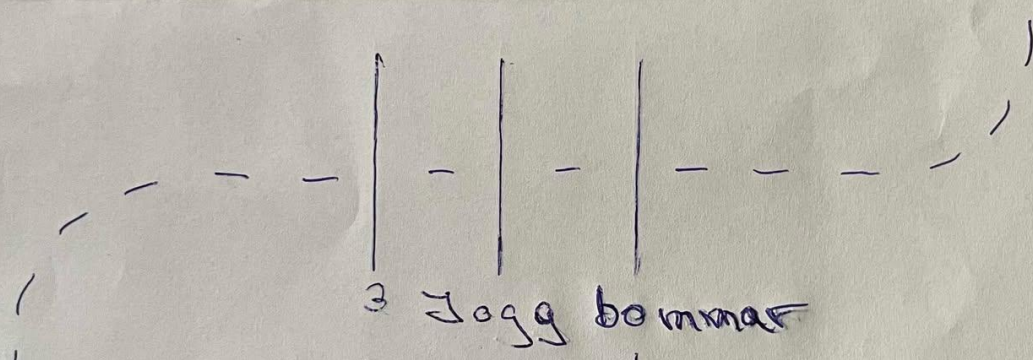 3 Jogg bommar